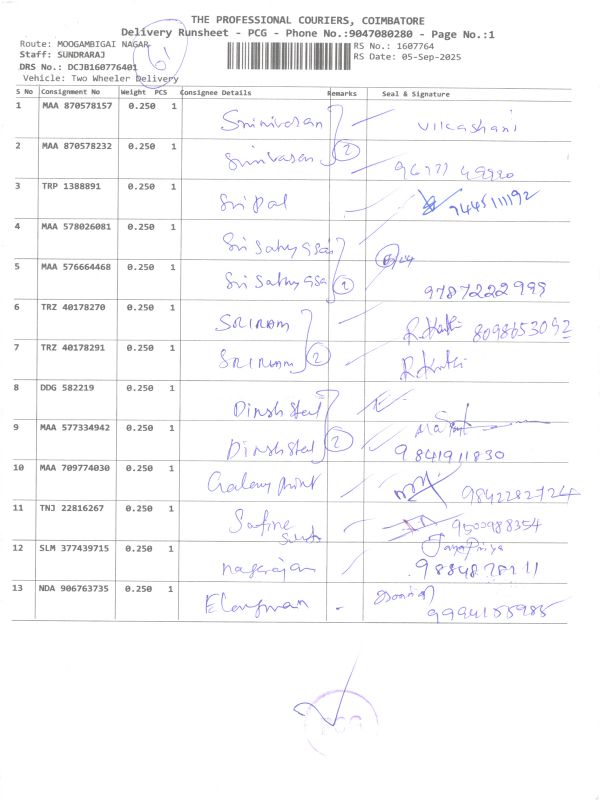 THE PROFESSIONAL COURIERS, COIMBATORE
Delivery Runsheet - PCG - Phone No.:9047080280 - Page No.:1
Route: MOOGAMBIGAI NAGAR RS No.: 1607764
Staff: SUNDRARAJ RS Date: 05-Sep-2025
DRS No.: DCJB160776401
Vehicle: Two Wheeler Delivery
S No Consignment No Weight PCS Consignee Details Remarks Seal & Signature
1 MAA 870578157 0.250 1 Srinivasan
2 MAA 870578232 0.250 1 Srinivasan 2
3 TRP 1388891 0.250 1 Sripal 7445111192
4 MAA 578026081 0.250 1 Sri Sathya Sai
5 MAA 576664468 0.250 1 Sri Sathya Sai 2 9787222999
6 TRZ 40178270 0.250 1 SRIRAM 8098653092
7 TRZ 40178291 0.250 1 SRIRAM 2
8 DDG 582219 0.250 1 Dinsh Steel
9 MAA 577334942 0.250 1 Dinsh Steel 2 9841911830
10 MAA 709774030 0.250 1 Galaxy print 9842282724
11 TNJ 22816267 0.250 1 9500988354
12 SLM 377439715 0.250 1 nagarajan JayaPriya
13 NDA 906763735 0.250 1 9994155985